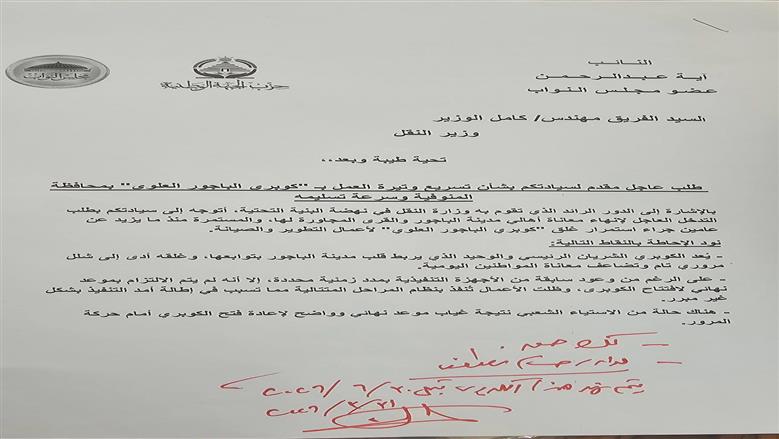 النائب
آية عبدالرحمن
عضو مجلس النواب
حزب الجبهة الوطنية
مجلس النواب
السيد الفريق مهندس/ كامل الوزير
وزير النقل
تحية طيبة وبعد..
طلب عاجل مقدم لسيادتكم بشأن تسريع وتيرة العمل بـ "كوبري الباجور العلوي" بمحافظة
المنوفية وسرعة تسليمه
بالإشارة إلى الدور الرائد الذي تقوم به وزارة النقل في نهضة البنية التحتية، أتوجه إلى سيادتكم بطلب
التدخل العاجل لإنهاء معاناة أهالي مدينة الباجور والقرى المجاورة لها، والمستمرة منذ ما يزيد عن
عامين جراء استمرار غلق "كوبري الباجور العلوي" لأعمال التطوير والصيانة.
نود الإحاطة بالنقاط التالية:
- يُعد الكوبري الشريان الرئيسي والوحيد الذي يربط قلب مدينة الباجور بتوابعها، وغلقه أدى إلى شلل
مروري تام وتضاعف معاناة المواطنين اليومية.
- على الرغم من وعود سابقة من الأجهزة التنفيذية بمدد زمنية محددة، إلا أنه لم يتم الالتزام بموعد
نهائي لافتتاح الكوبري، وظلت الأعمال تُنفذ بنظام المراحل المتتالية مما تسبب في إطالة أمد التنفيذ بشكل
غير مبرر.
- هناك حالة من الاستياء الشعبي نتيجة غياب موعد نهائي وواضح لإعادة فتح الكوبري أمام حركة
المرور.
يتم هذا قبل ٢٠٢٦/٦/٣٠
٢٠٢٦/٣/٣١